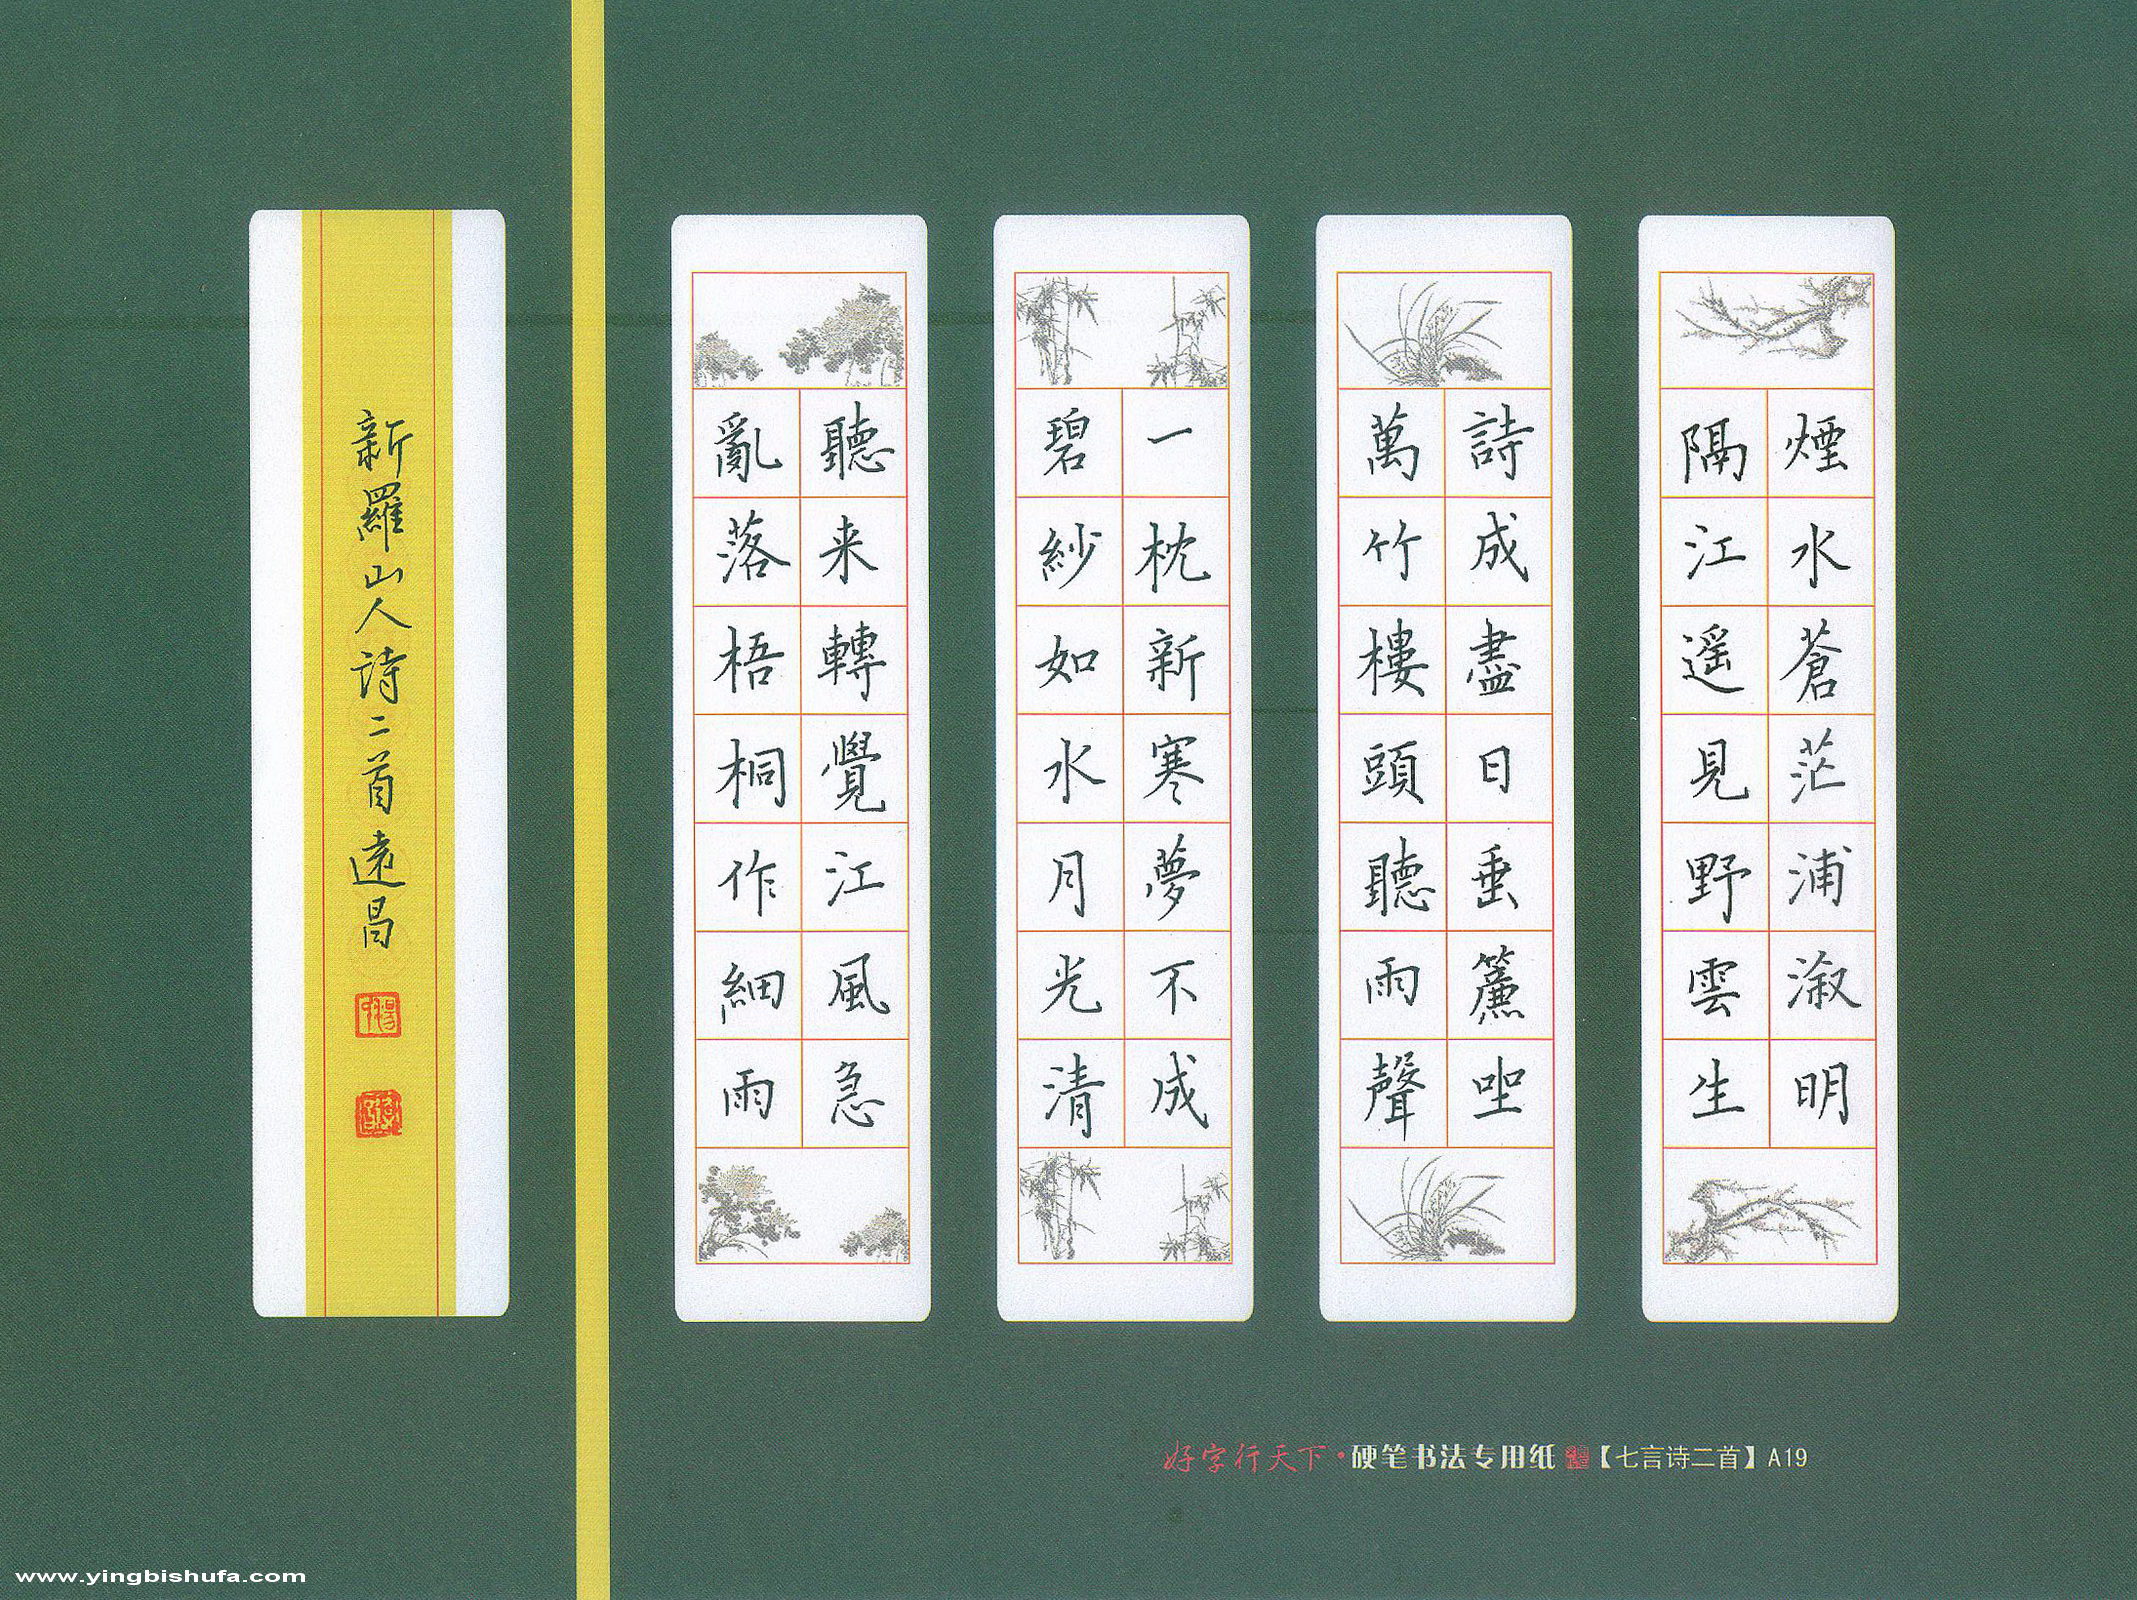 煙水蒼茫浦溆明
隔江遥見野雲生
詩成盡日垂簾坐
萬竹樓頭聽雨聲
一枕新寒夢不成
碧紗如水月光清
聽来轉覺江風急
亂落梧桐作細雨
新羅山人诗二首遠昌
好字行天下·硬笔书法专用纸【七言诗二首】A19
www.yingbishufa.com